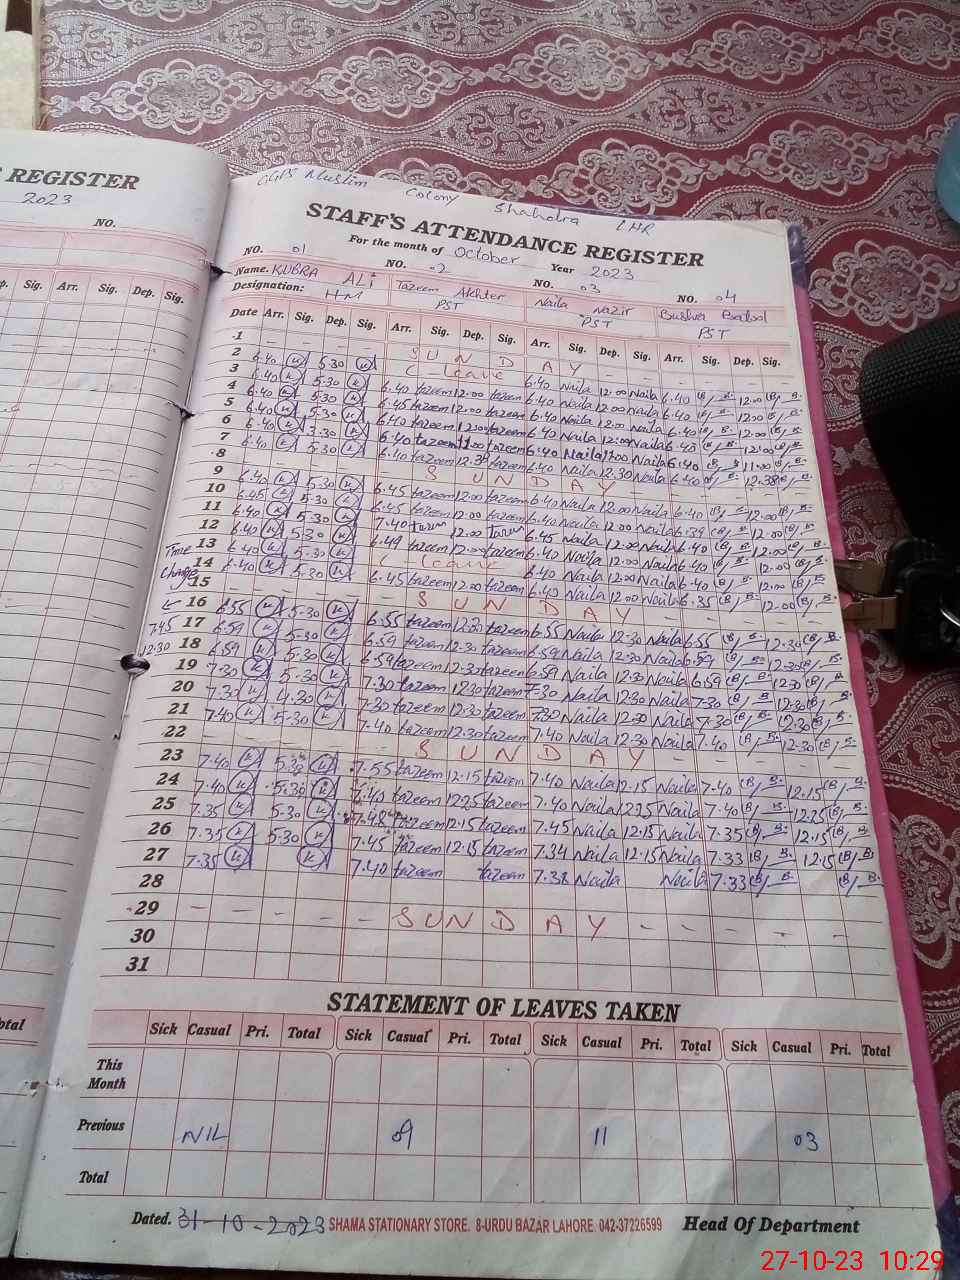 REGISTER
2023
NO.
Sig. Arr. Sig. Dep. Sig.
GGPS Muslim Colony Shahdra LHR
STAFF'S ATTENDANCE REGISTER
For the month of October Year 2023
NO. 01 NO. 02 NO. 03 NO. 04
Name. KUBRA ALI Tazeem Akhter Naila Nazir Bushra Batool
Designation: HM PST PST PST
Date Arr. Sig. Dep. Sig. Arr. Sig. Dep. Sig. Arr. Sig. Dep. Sig. Arr. Sig. Dep. Sig.
1 – – – – S U N D A Y – – – –
2 6.40 K 5.30 K C Leave 6.40 Naila 12.00 Naila 6.40 B/B. 12.00 B/B.
3 6.40 K 5.30 K 6.40 tazeem 12.00 tazeem 6.40 Naila 12.00 Naila 6.40 B/B. 12.00 B/B.
4 6.40 K 5.30 K 6.45 tazeem 12.00 tazeem 6.40 Naila 12.00 Naila 6.40 B/B. 12.00 B/B.
5 6.40 K 5.30 K 6.40 tazeem 12.00 tazeem 6.40 Naila 12.00 Naila 6.40 B/B. 12.00 B/B.
6 6.40 K 3.30 K 6.40 tazeem 11.00 tazeem 6.40 Naila 11.00 Naila 6.40 B/B. 11.00 B/B.
7 6.40 K 5.30 K 6.40 tazeem 12.30 tazeem 6.40 Naila 12.30 Naila 6.40 B/B. 12.38 B/B.
8 – – – – S U N D A Y – – – –
9 6.40 K 5.30 K 6.45 tazeem 12.00 tazeem 6.40 Naila 12.00 Naila 6.40 B/B. 12.00 B/B.
10 6.45 K 5.30 K 6.45 tazeem 12.00 tazeem 6.40 Naila 12.00 Naila 6.39 B/B. 12.00 B/B.
11 6.40 K 5.30 K 7.40 tazeem 12.00 tazeem 6.45 Naila 12.00 Naila 6.40 B/B. 12.00 B/B.
12 6.40 K 5.30 K 6.49 tazeem 12.00 tazeem 6.40 Naila 12.00 Naila 6.40 B/B. 12.00 B/B.
Time 13 6.40 K 5.30 K C Leave 6.40 Naila 12.00 Naila 6.40 B/B. 12.00 B/B.
Change 14 6.40 K 5.30 K 6.45 tazeem 12.00 tazeem 6.40 Naila 12.00 Naila 6.35 B/B. 12.00 B/B.
15 – – – – S U N D A Y – – – –
16 6.55 K 5.30 K 6.55 tazeem 12.30 tazeem 6.55 Naila 12.30 Naila 6.55 B/B. 12.30 B/B.
7.45 17 6.59 K 5.30 K 6.59 tazeem 12.30 tazeem 6.59 Naila 12.30 Naila 6.59 B/B. 12.30 B/B.
12.30 18 6.59 K 5.30 K 6.59 tazeem 12.30 tazeem 6.59 Naila 12.30 Naila 6.59 B/B. 12.30 B/B.
19 7.30 K 5.30 K 7.30 tazeem 12.30 tazeem 7.30 Naila 12.30 Naila 7.30 B/B. 12.30 B/B.
20 7.30 K 4.30 K 7.30 tazeem 12.30 tazeem 7.30 Naila 12.30 Naila 7.30 B/B. 12.30 B/B.
21 7.40 K 5.30 K 7.40 tazeem 12.30 tazeem 7.40 Naila 12.30 Naila 7.40 B/B. 12.30 B/B.
22 – – – – S U N D A Y – – – –
23 7.40 K 5.30 K 7.55 tazeem 12.15 tazeem 7.40 Naila 12.15 Naila 7.40 B/B. 12.15 B/B.
24 7.40 K 5.30 K 7.40 tazeem 12.25 tazeem 7.40 Naila 12.25 Naila 7.40 B/B. 12.25 B/B.
25 7.35 K 5.30 K 7.48 tazeem 12.15 tazeem 7.45 Naila 12.15 Naila 7.35 B/B. 12.15 B/B.
26 7.35 K 5.30 K 7.45 tazeem 12.15 tazeem 7.34 Naila 12.15 Naila 7.33 B/B. 12.15 B/B.
27 7.35 K K 7.40 tazeem tazeem 7.38 Naila Naila 7.33 B/B. B/B.
28
29 – – – – – S U N D A Y – – – – –
30
31
STATEMENT OF LEAVES TAKEN
Sick Casual Pri. Total Sick Casual Pri. Total Sick Casual Pri. Total Sick Casual Pri. Total
This Month
Previous NIL 09 11 03
Total
Dated. 31-10-2023 SHAMA STATIONARY STORE. 8-URDU BAZAR LAHORE. 042-37226599 Head Of Department
27-10-23 10:29